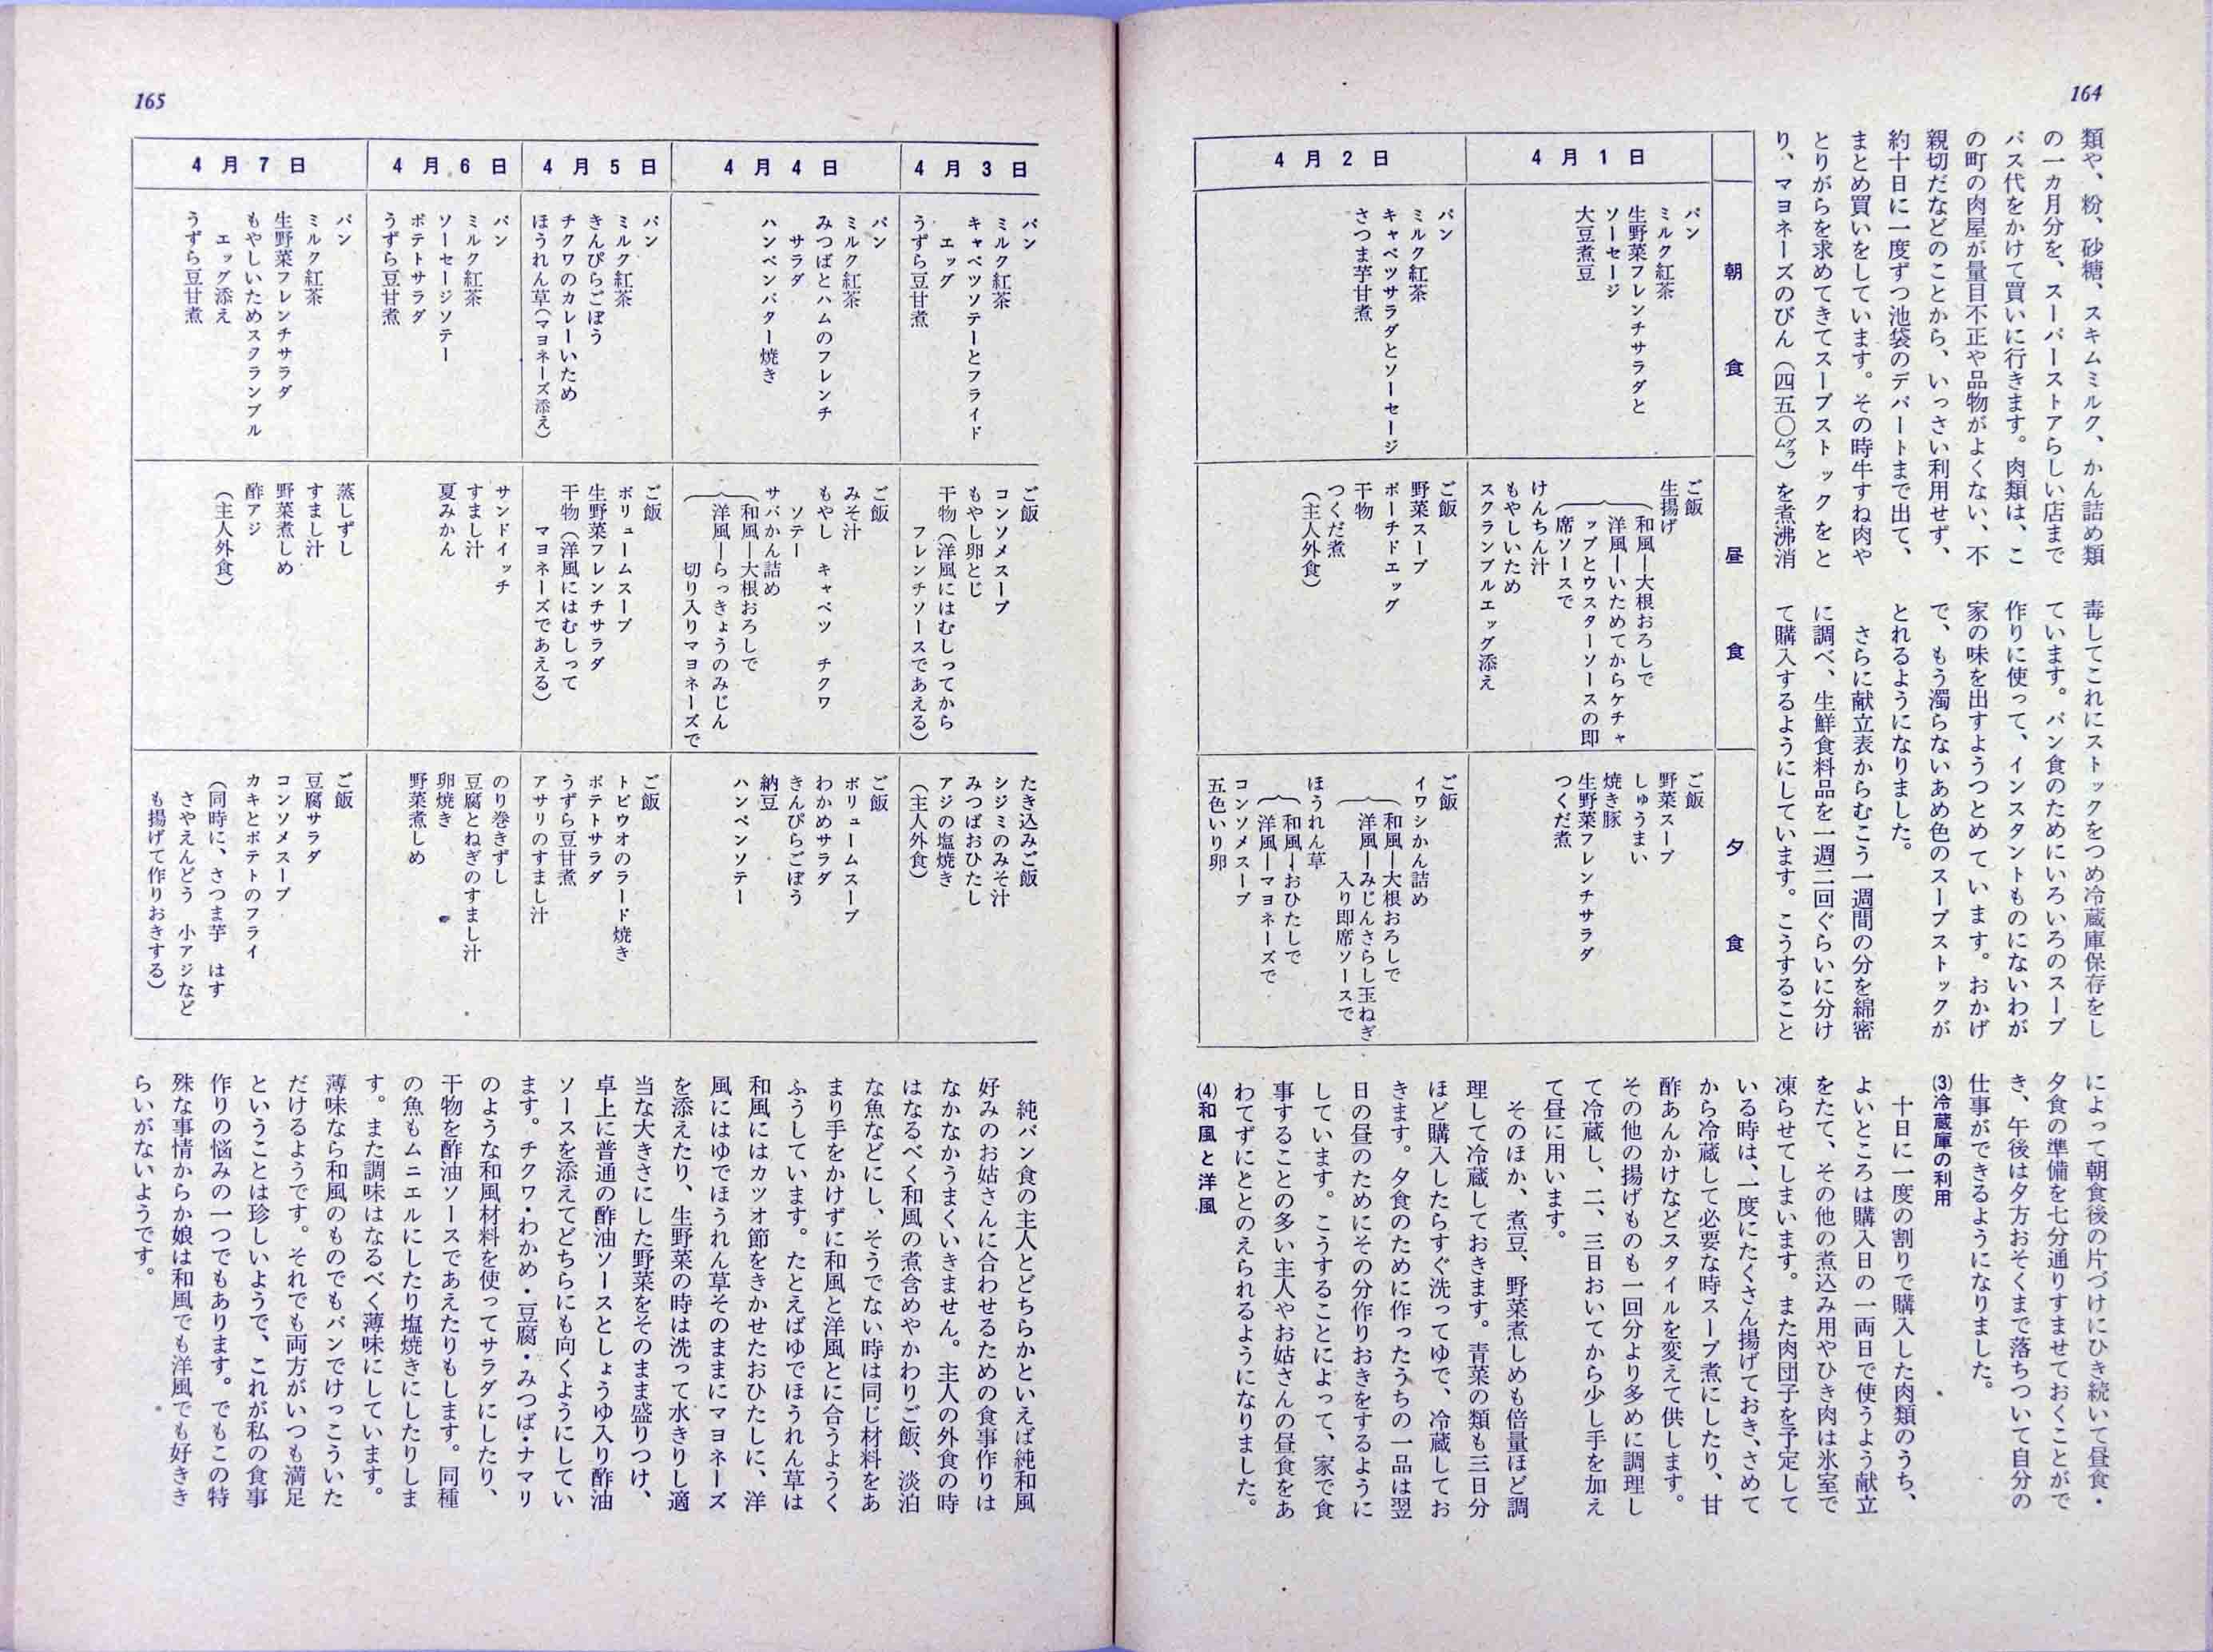 164
類や、粉、砂糖、スキムミルク、かん詰め類
の一カ月分を、スーパーストアらしい店まで
バス代をかけて買いに行きます。肉類は、こ
の町の肉屋が量目不正や品物がよくない、不
親切だなどのことから、いっさい利用せず、
約十日に一度ずつ池袋のデパートまで出て、
まとめ買いをしています。その時牛すね肉や
とりがらを求めてきてスープストックをと
り、マヨネーズのびん(四五〇グラム)を煮沸消
毒してこれにストックをつめ冷蔵庫保存をし
ています。パン食のためにいろいろのスープ
作りに使って、インスタントものにないわが
家の味を出すようつとめています。おかげ
で、もう濁らないあめ色のスープストックが
とれるようになりました。
さらに献立表からむこう一週間の分を綿密
に調べ、生鮮食料品を一週二回ぐらいに分け
て購入するようにしています。こうすること
朝食
昼食
夕食
4月1日
パン
ミルク紅茶
生野菜フレンチサラダと
ソーセージ
大豆煮豆
ご飯
生揚げ
和風―大根おろしで
洋風―いためてからケチャ
ップとウスターソースの即
席ソースで
けんちん汁
もやしいため
スクランブルエッグ添え
ご飯
野菜スープ
しゅうまい
焼き豚
生野菜フレンチサラダ
つくだ煮
4月2日
パン
ミルク紅茶
キャベツサラダとソーセージ
さつま芋甘煮
ご飯
野菜スープ
ポーチドエッグ
干物
つくだ煮
(主人外食)
ご飯
イワシかん詰め
和風―大根おろしで
洋風―みじんさらし玉ねぎ
入り即席ソースで
ほうれん草
和風―おひたしで
洋風―マヨネーズで
コンソメスープ
五色いり卵
によって朝食後の片づけにひき続いて昼食・
夕食の準備を七分通りすませておくことがで
き、午後は夕方おそくまで落ちついて自分の
仕事ができるようになりました。
(3)冷蔵庫の利用
十日に一度の割りで購入した肉類のうち、
よいところは購入日の一両日で使うよう献立
をたて、その他の煮込み用やひき肉は氷室で
凍らせてしまいます。また肉団子を予定して
いる時は、一度にたくさん揚げておき、さめて
から冷蔵して必要な時スープ煮にしたり、甘
酢あんかけなどスタイルを変えて供します。
その他の揚げものも一回分より多めに調理し
て冷蔵し、二、三日おいてから少し手を加え
て昼に用います。
そのほか、煮豆、野菜煮しめも倍量ほど調
理して冷蔵しておきます。青菜の類も三日分
ほど購入したらすぐ洗ってゆで、冷蔵してお
きます。夕食のために作ったうちの一品は翌
日の昼のためにその分作りおきをするように
しています。こうすることによって、家で食
事することの多い主人やお姑さんの昼食をあ
わてずにととのえられるようになりました。
(4)和風と洋風
165
4月3日
パン
ミルク紅茶
キャベツソテーとフライド
エッグ
うずら豆甘煮
ご飯
コンソメスープ
もやし卵とじ
干物(洋風にはむしってから
フレンチソースであえる)
たき込みご飯
シジミのみそ汁
みつばおひたし
アジの塩焼き
(主人外食)
4月4日
パン
ミルク紅茶
みつばとハムのフレンチ
サラダ
ハンペンバター焼き
ご飯
みそ汁
もやし キャベツ チクワ
ソテー
サバかん詰め
和風―大根おろしで
洋風―らっきょうのみじん
切り入りマヨネーズで
ご飯
ボリュームスープ
わかめサラダ
きんぴらごぼう
納豆
ハンペンソテー
4月5日
パン
ミルク紅茶
きんぴらごぼう
チクワのカレーいため
ほうれん草(マヨネーズ添え)
ご飯
ボリュームスープ
生野菜フレンチサラダ
干物(洋風にはむしって
マヨネーズであえる)
ご飯
トビウオのラード焼き
ポテトサラダ
うずら豆甘煮
アサリのすまし汁
4月6日
パン
ミルク紅茶
ソーセージソテー
ポテトサラダ
うずら豆甘煮
サンドイッチ
すまし汁
夏みかん
のり巻きずし
豆腐とねぎのすまし汁
卵焼き
野菜煮しめ
4月7日
パン
ミルク紅茶
生野菜フレンチサラダ
もやしいためスクランブル
エッグ添え
うずら豆甘煮
蒸しずし
すまし汁
野菜煮しめ
酢アジ
(主人外食)
ご飯
豆腐サラダ
コンソメスープ
カキとポテトのフライ
(同時に、さつま芋 はす
さやえんどう 小アジなど
も揚げて作りおきする)
純パン食の主人とどちらかといえば純和風
好みのお姑さんに合わせるための食事作りは
なかなかうまくいきません。主人の外食の時
はなるべく和風の煮含めやかわりご飯、淡泊
な魚などにし、そうでない時は同じ材料をあ
まり手をかけずに和風と洋風とに合うようく
ふうしています。たとえばゆでほうれん草は
和風にはカツオ節をきかせたおひたしに、洋
風にはゆでほうれん草そのままにマヨネーズ
を添えたり、生野菜の時は洗って水きりし適
当な大きさにした野菜をそのまま盛りつけ、
卓上に普通の酢油ソースとしょうゆ入り酢油
ソースを添えてどちらにも向くようにしてい
ます。チクワ・わかめ・豆腐・みつば・ナマリ
のような和風材料を使ってサラダにしたり、
干物を酢油ソースであえたりもします。同種
の魚もムニエルにしたり塩焼きにしたりしま
す。また調味はなるべく薄味にしています。
薄味なら和風のものでもパンでけっこういた
だけるようです。それでも両方がいつも満足
ということは珍しいようで、これが私の食事
作りの悩みの一つでもあります。でもこの特
殊な事情からか娘は和風でも洋風でも好きき
らいがないようです。